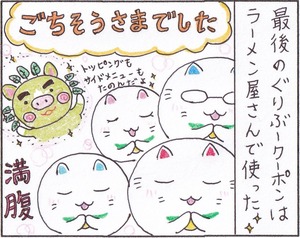 最後のぐりぶークーポンは
ラーメン屋さんで使った
ごちそうさまでした
トッピングも
サイドメニューも
たのんだよ
満腹